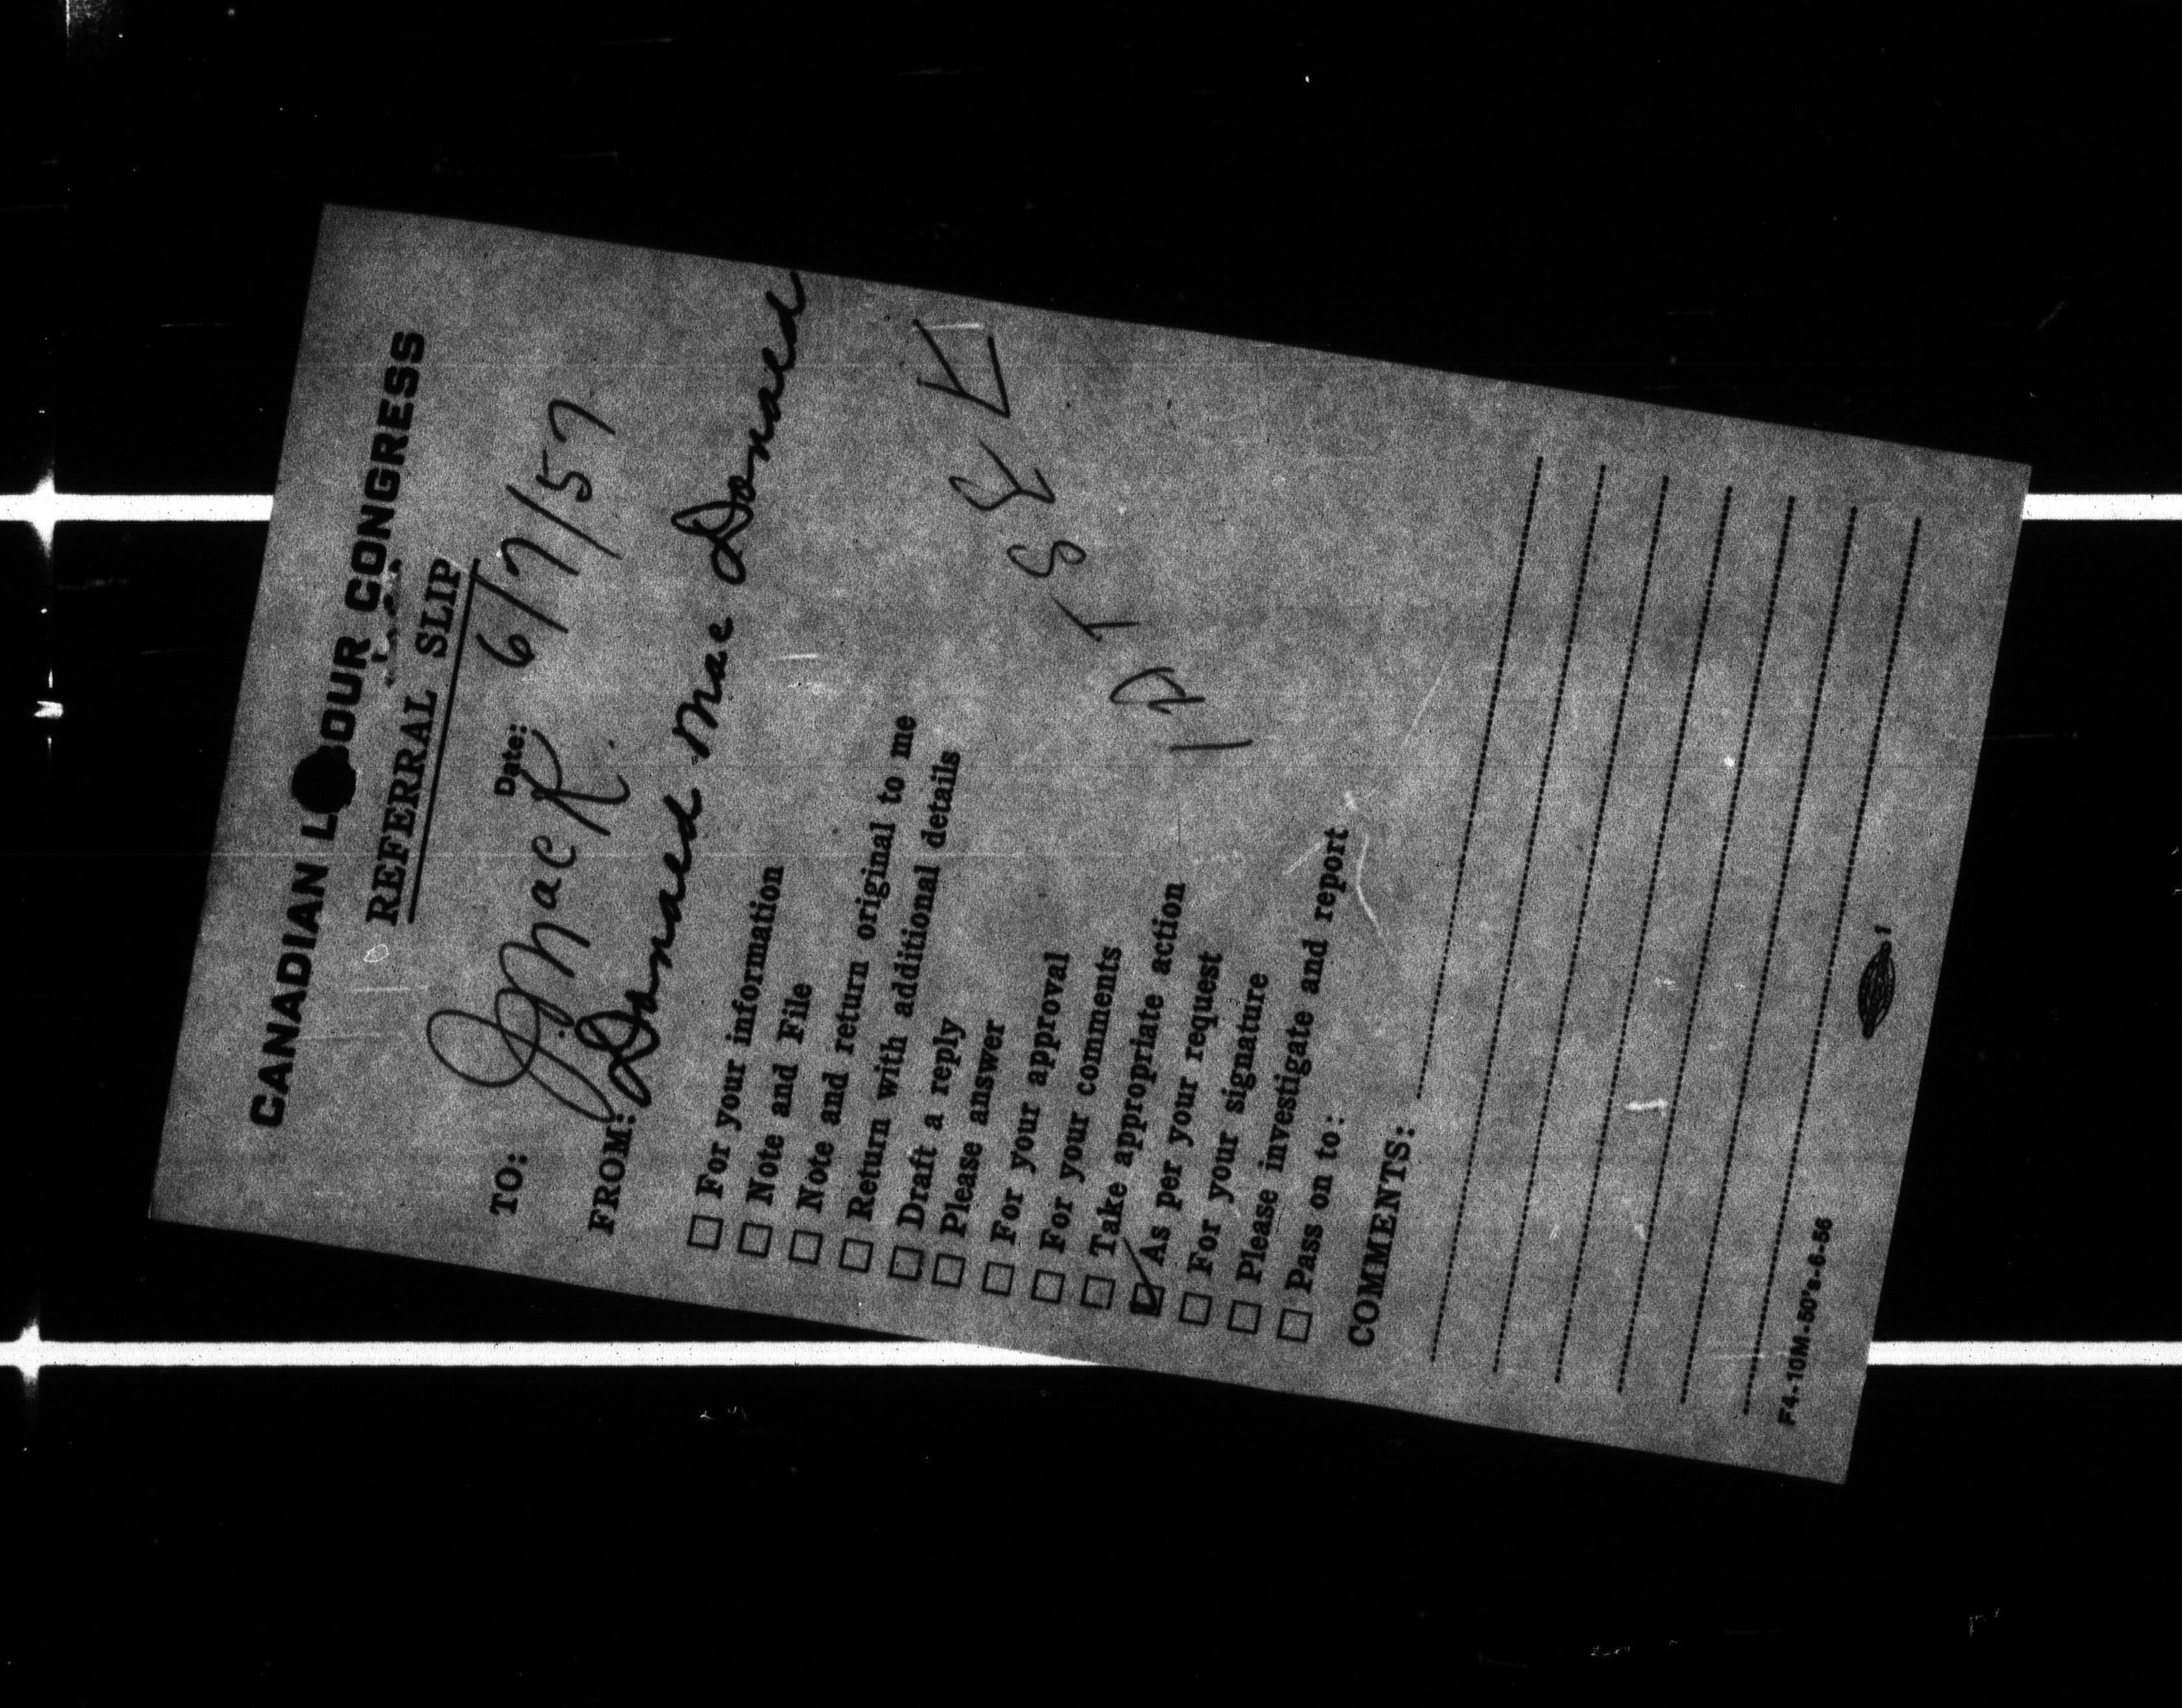 CANADIAN LABOUR CONGRESS
REFERRAL SLIP
Date: 6/7/57
TO: J. Mac K.
FROM: Donald Mac Donald
☐ For your information
☐ Note and File
☐ Note and return original to me
☐ Return with additional details
☐ Draft a reply
☐ Please answer
☐ For your approval
☐ For your comments
☐ Take appropriate action
☑ As per your request
☐ For your signature
☐ Please investigate and report
☐ Pass on to:
COMMENTS:
F4-10M-50's-6-56